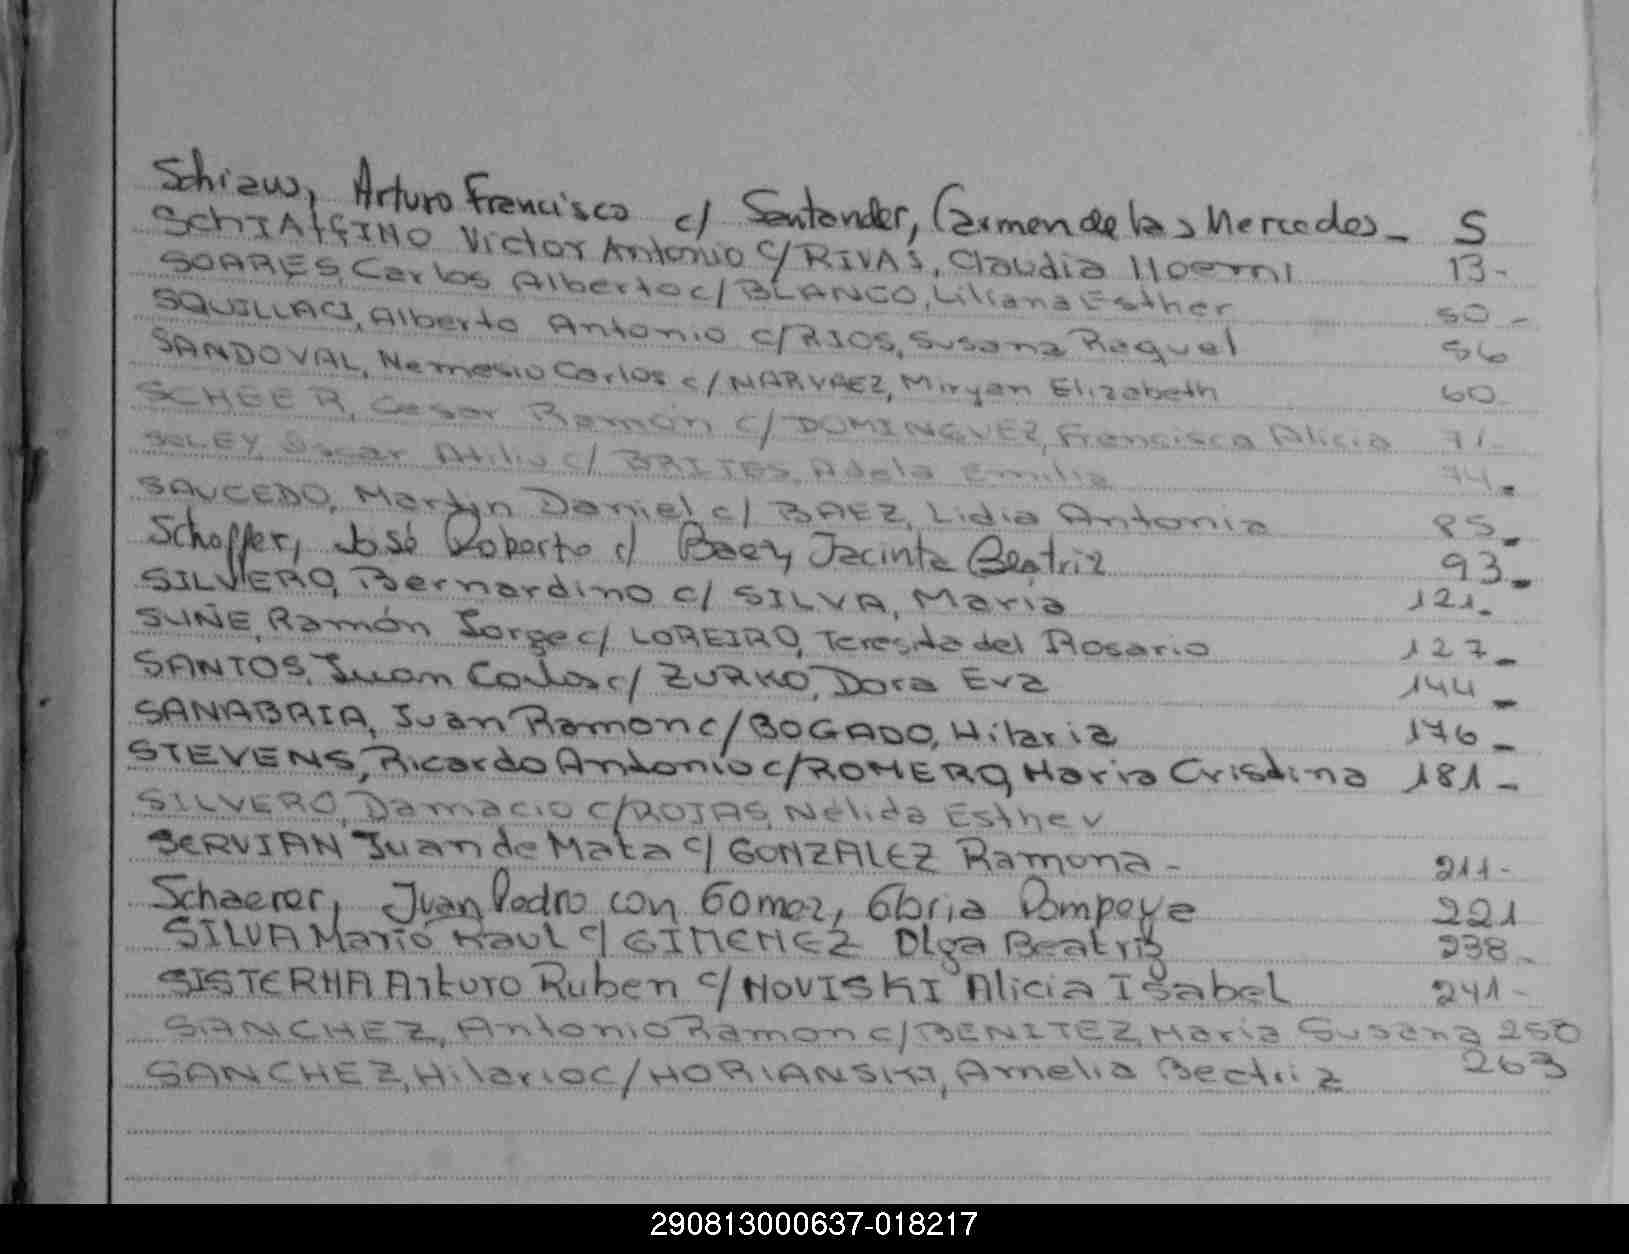 Schiaw, Arturo Francisco c/ Santander, Carmen de las Mercedes - 5
SCHIAFFINO Victor Antonio c/ RIVAS, Claudia Noemi 13-
SOARES, Carlos Alberto c/ BLANCO, Liliana Esther 50-
SQUILLACI, Alberto Antonio c/ RIOS, Susana Raquel 56
SANDOVAL, Nemesio Carlos c/ NARVAEZ, Miryan Elizabeth 60-
SCHEER, Cesar Ramón c/ DOMINGUEZ, Francisca Alicia 71-
SOLEY, Oscar Atilio c/ BRITES, Adela Emilia 74-
SAUCEDO, Martin Daniel c/ BAEZ, Lidia Antonia 85-
Schoffer, José Roberto c/ Baez, Jacinta Beatriz 93-
SILVERO, Bernardino c/ SILVA, Maria 121-
SUÑE, Ramón Jorge c/ LOREIRO, Teresita del Rosario 127-
SANTOS, Juan Carlos c/ ZURKO, Dora Eva 144-
SANABRIA, Juan Ramon c/ BOGADO, Hilaria 176-
STEVENS, Ricardo Antonio c/ ROMERO, Maria Cristina 181-
SILVERO, Damacio c/ ROJAS, Nélida Esther
SERVIAN Juan de Mata c/ GONZALEZ Ramona - 211-
Schaerer, Juan Pedro con Gomez, Gloria Pompeya 221
SILVA Mario Raul c/ GIMENEZ Olga Beatriz 238-
SISTERNA Arturo Ruben c/ NOVISKI Alicia Isabel 241-
SANCHEZ, Antonio Ramon c/ BENITEZ, Maria Susana 250
SANCHEZ, Hilario c/ HORIANSKI, Amelia Beatriz 263
290813000637-018217